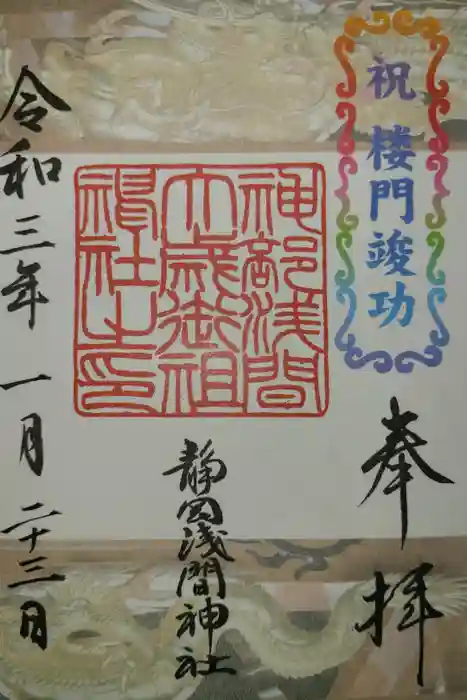 祝 楼門竣功
奉拝
神部浅間
大歳御祖
神社之印
静岡浅間神社
令和三年 一月 二十三日